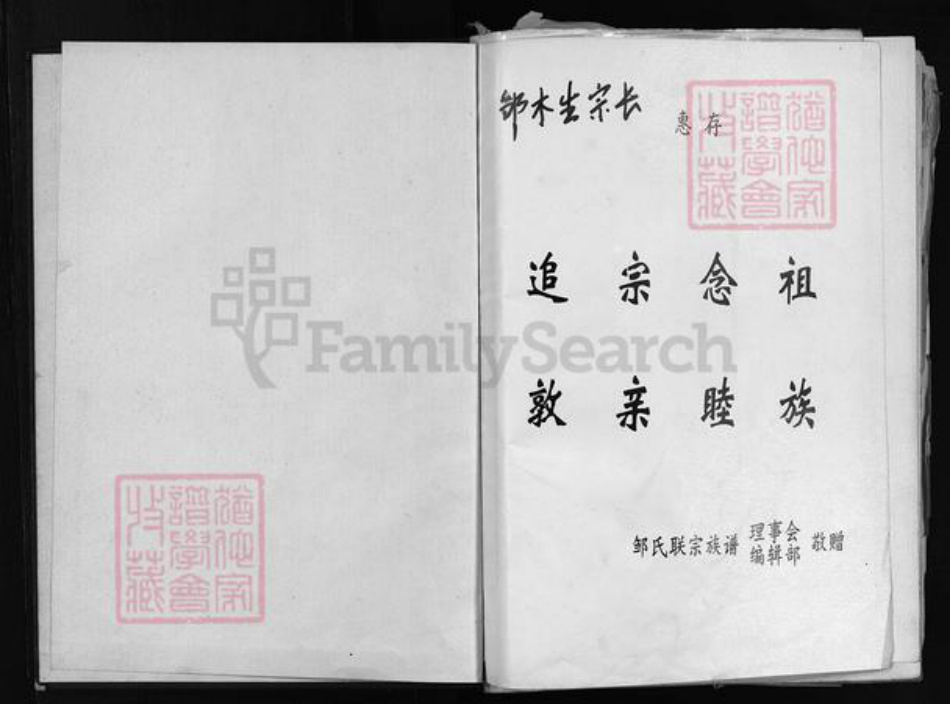 邹木生宗长 惠存
追宗念祖
敦亲睦族
邹氏联宗族谱 理事会 编辑部 敬赠
猶他家
譜學會
收藏
猶他家
譜學會
收藏
FamilySearch